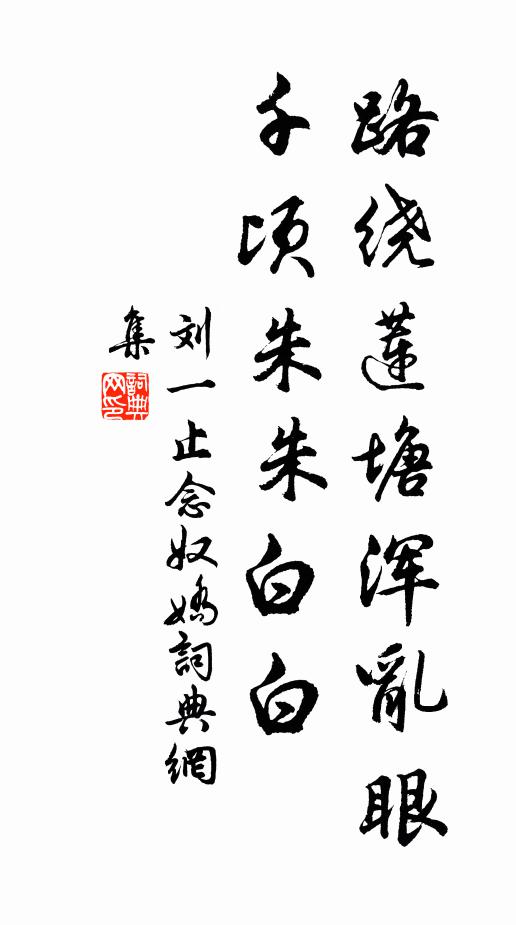 路绕莲塘浑亂眼
千顷朱朱白白
刘一止念奴嬌詞典網
集
詞典
网印